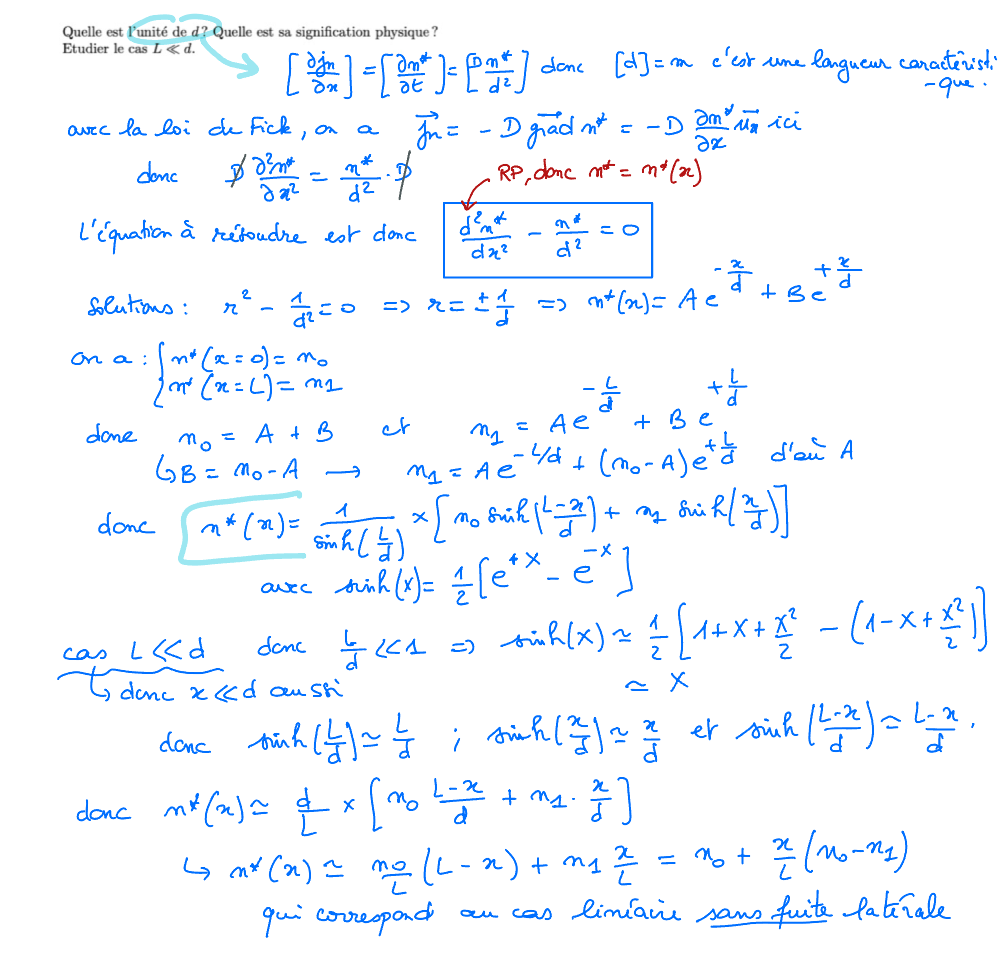 Quelle est l'unité de d? Quelle est sa signification physique?
Etudier le cas L ≪ d.
[∂jn/∂x] = [∂n*/∂t] = [D n*/d²] donc [d] = m c'est une longueur caractéristi-
-que.
avec la loi de Fick, on a jn⃗ = - D grad⃗ n* = - D ∂n*/∂x ux⃗ ici
donc D ∂²n*/∂x² = n*/d² · D
RP, donc n* = n*(x)
L'équation à résoudre est donc d²n*/dx² - n*/d² = 0
Solutions : r² - 1/d² = 0 => r = ± 1/d => n*(x) = A e^(-x/d) + B e^(+x/d)
on a : { n*(x=0) = n₀
n*(x=L) = n₁
donc n₀ = A + B et n₁ = A e^(-L/d) + B e^(+L/d)
↳ B = n₀ - A → n₁ = A e^(-L/d) + (n₀-A) e^(+L/d) d'où A
donc n*(x) = 1/sinh(L/d) × [n₀ sinh(L-x/d) + n₁ sinh(x/d)]
avec sinh(x) = 1/2 [e^(+x) - e^(-x)]
cas L ≪ d donc L/d ≪ 1 => sinh(x) ≃ 1/2 [1 + x + x²/2 - (1 - x + x²/2)]
↳ donc x ≪ d aussi ≃ x
donc sinh(L/d) ≃ L/d ; sinh(x/d) ≃ x/d et sinh(L-x/d) ≃ L-x/d.
donc n*(x) ≃ d/L × [n₀ L-x/d + n₁ · x/d]
↳ n*(x) ≃ n₀/L (L - x) + n₁ x/L = n₀ + x/L (n₀ - n₁)
qui correspond au cas linéaire sans fuite latérale